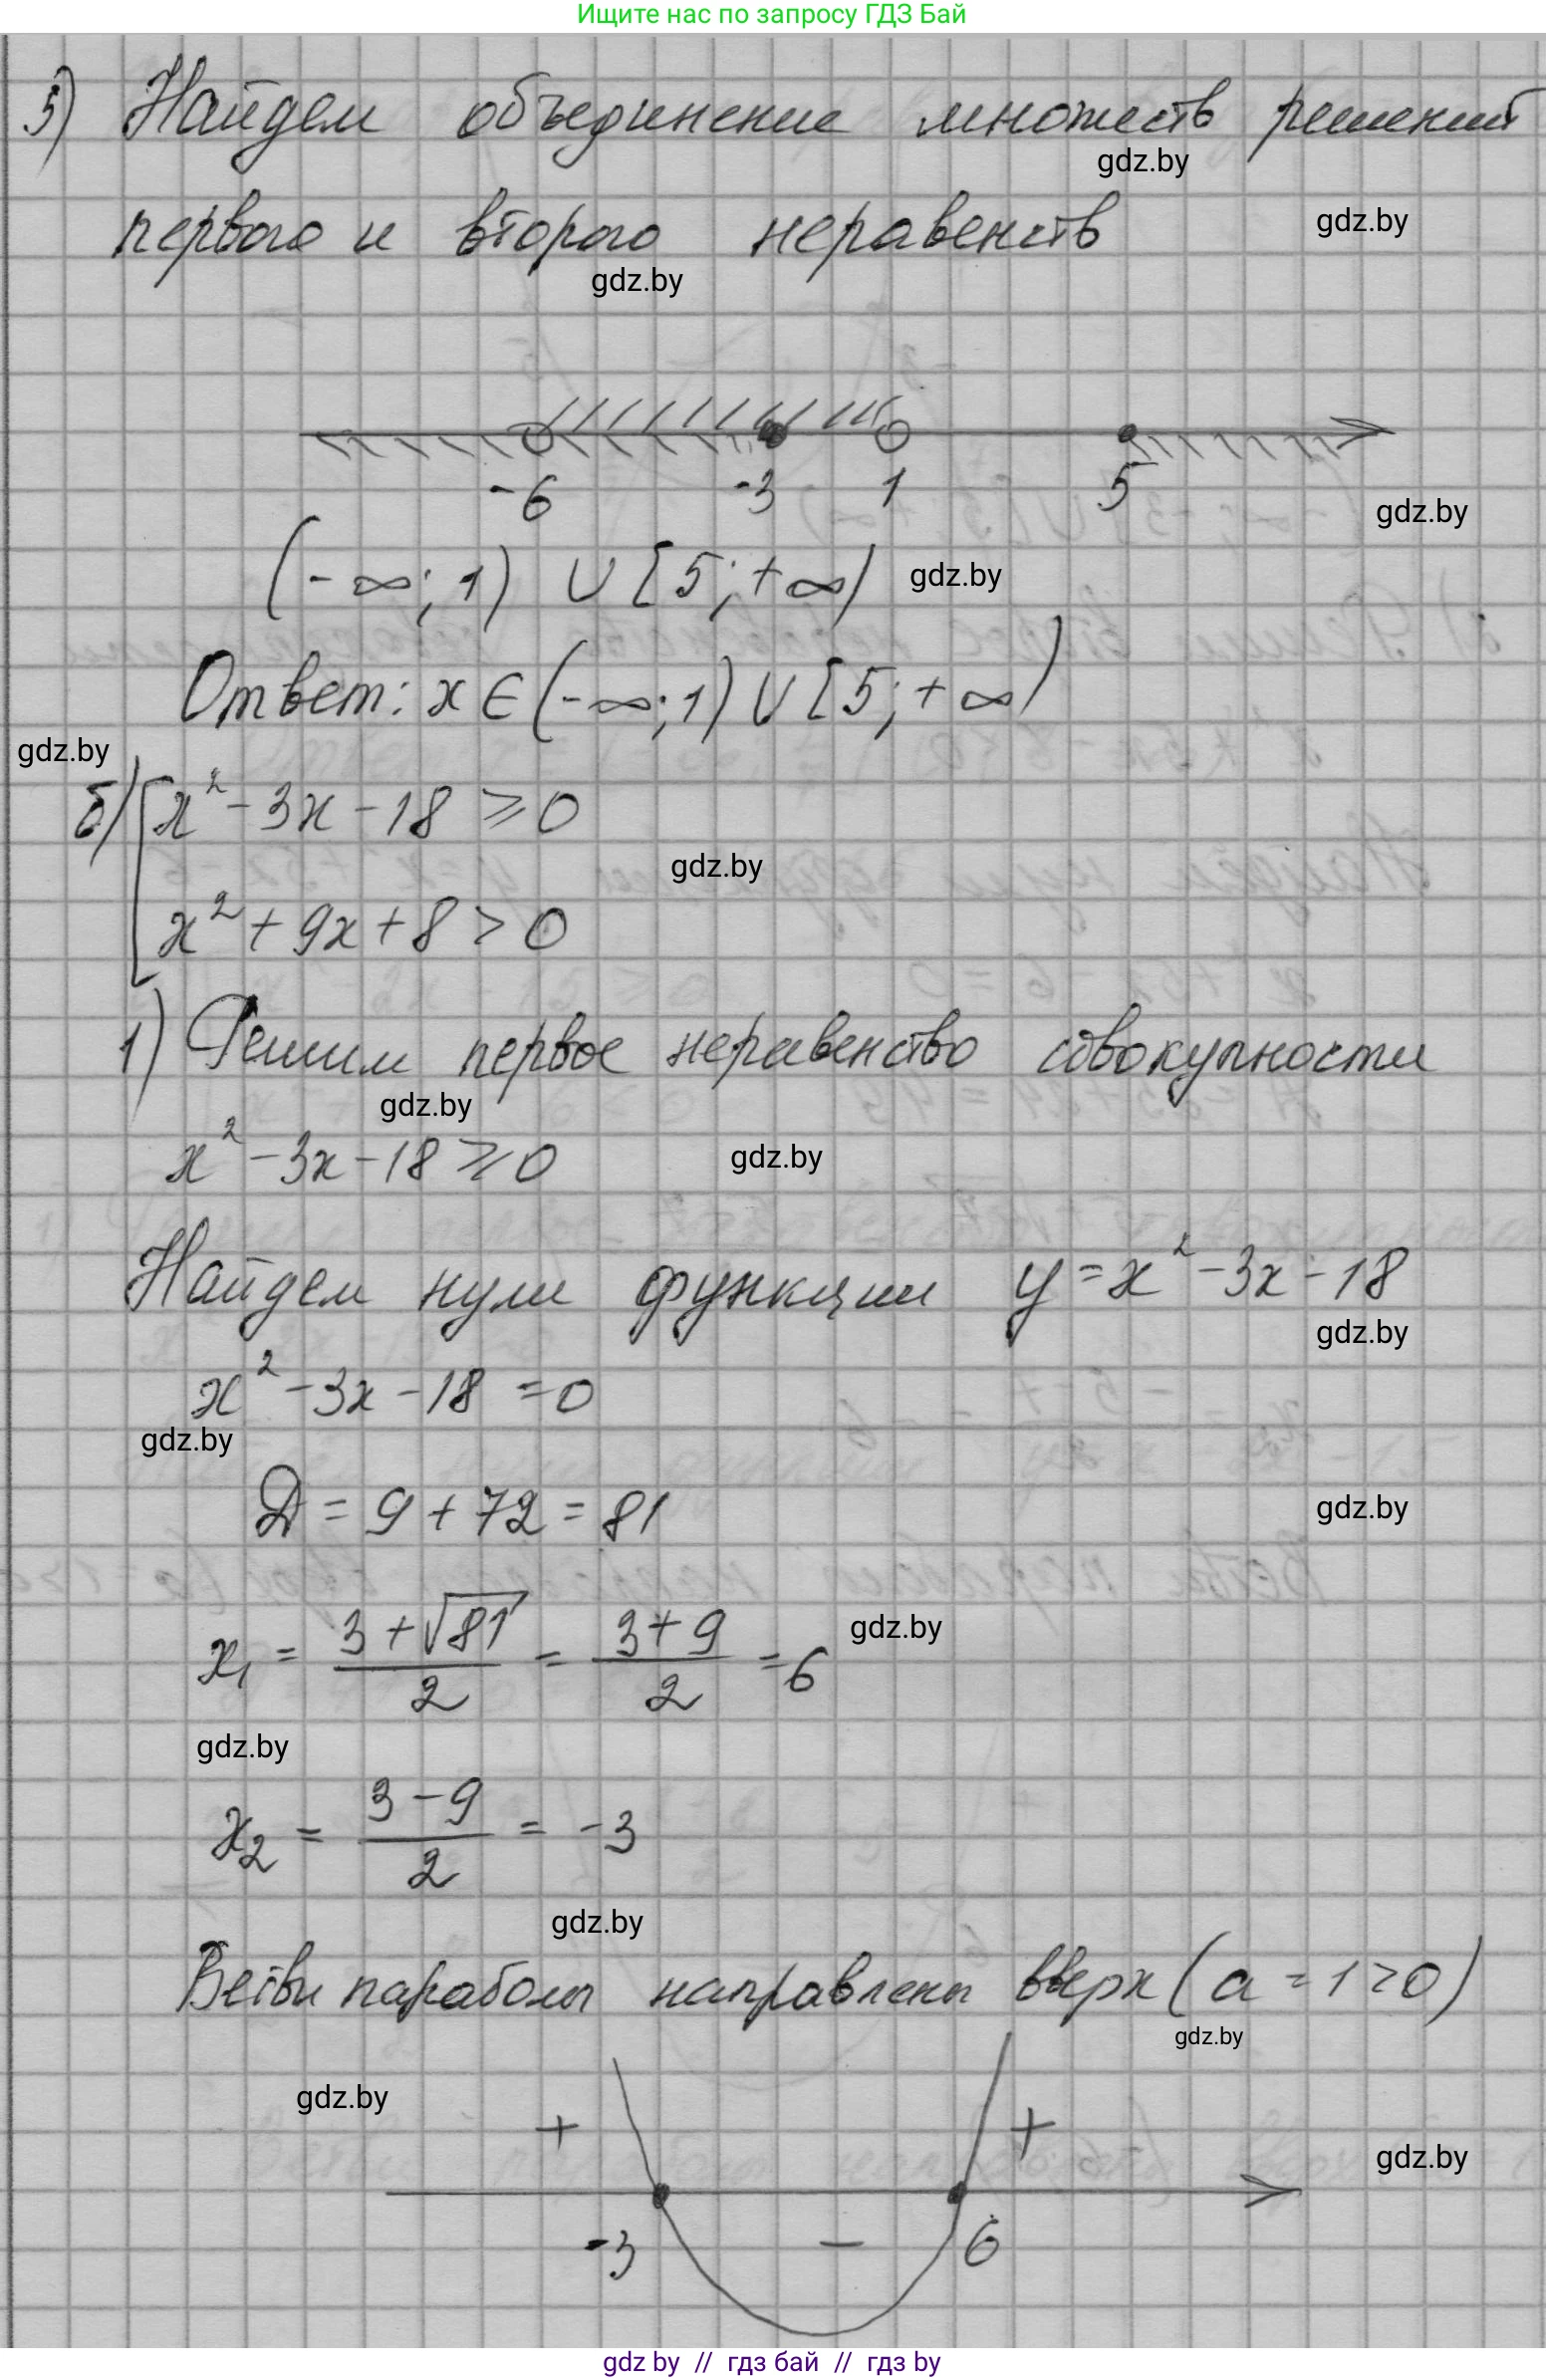 Ищите нас по запросу ГДЗ Бай
3) Найдем объединение множеств решений
gdz.by
первого и второго неравенств
gdz.by
gdz.by
-6 -3 1 5
gdz.by
(-∞; 1) ∪ [5; +∞)
gdz.by
Ответ: x ∈ (-∞; 1) ∪ [5; +∞)
gdz.by
б) [x² - 3x - 18 ≥ 0
gdz.by
x² + 9x + 8 > 0
1) Решим первое неравенство совокупности
gdz.by
x² - 3x - 18 ≥ 0
gdz.by
Найдем нули функции y = x² - 3x - 18
gdz.by
x² - 3x - 18 = 0
gdz.by
Д = 9 + 72 = 81
gdz.by
x₁ = (3 + √81)/2 = (3 + 9)/2 = 6
gdz.by
gdz.by
x₂ = (3 - 9)/2 = -3
gdz.by
Ветви параболы направлены вверх (a = 1 > 0)
gdz.by
gdz.by
+ +
gdz.by
-3 - 6
gdz by // гдз бай // гдз by